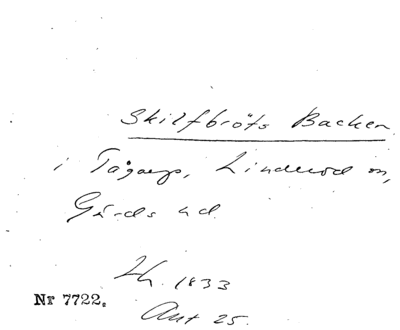 Skilfbröts Backen
i Tågarp, Linderöd sn,
Gärds hd.
Lh. 1833
Nr 7722.
Akt 25.